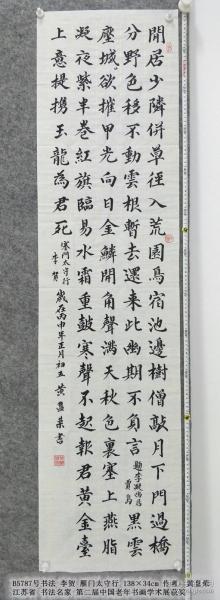 閒居少隣併草徑入荒園鳥宿池邊樹僧敲月下門過橋
分野色移不動雲根暫去還來此幽期不負言 題李凝幽居 賈島 黑雲
壓城欲摧甲光向日金鱗開角聲滿天秋色裏塞上燕脂
凝夜紫半卷紅旗臨易水霜重鼓寒聲不起報君黃金臺
上意提攜玉龍為君死 雁門太守行 李賀 歲在丙申年正月初五 黃 書
B5787号书法 李贺 雁门太守行 138×34cm 作者
江苏省 书法名家 第二届中国老年书画学术展获奖